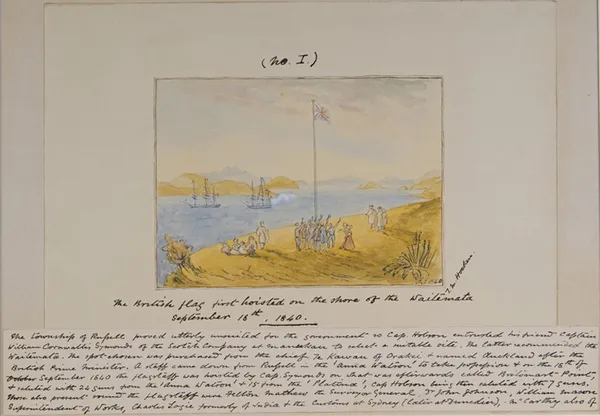 (No. I.)
The British flag first hoisted on the shore of the Waitemata
September 18th 1840.
The township of Russell proved utterly unsuited for the government so Cap Hobson entrusted his friend Captain
William Cornwallis Symonds of the Scotch Company at to select a suitable site. The latter recommended the
Waitemata. The spot chosen was purchased from the chief Te Kawau of Orakei & named Auckland after the
British Prime Minister. A staff came down from Russell in the 'Anna Watson' to take possession & on the 18th of
September 1840 the flagstaff was hoisted by Cap. Symonds on what was afterwards called Britomart Point,
& saluted with 21 guns from the 'Anna Watson' & 15 from the 'Platina', Cap Hobson being then saluted with 7 guns.
Those also present round the flagstaff were Felton Mathew the Surveyor General, Dr John Johnson, William Mason
Superintendent of Works, Charles Logie formerly of India & the Customs at Sydney (later at Dunedin), McCarthy also of